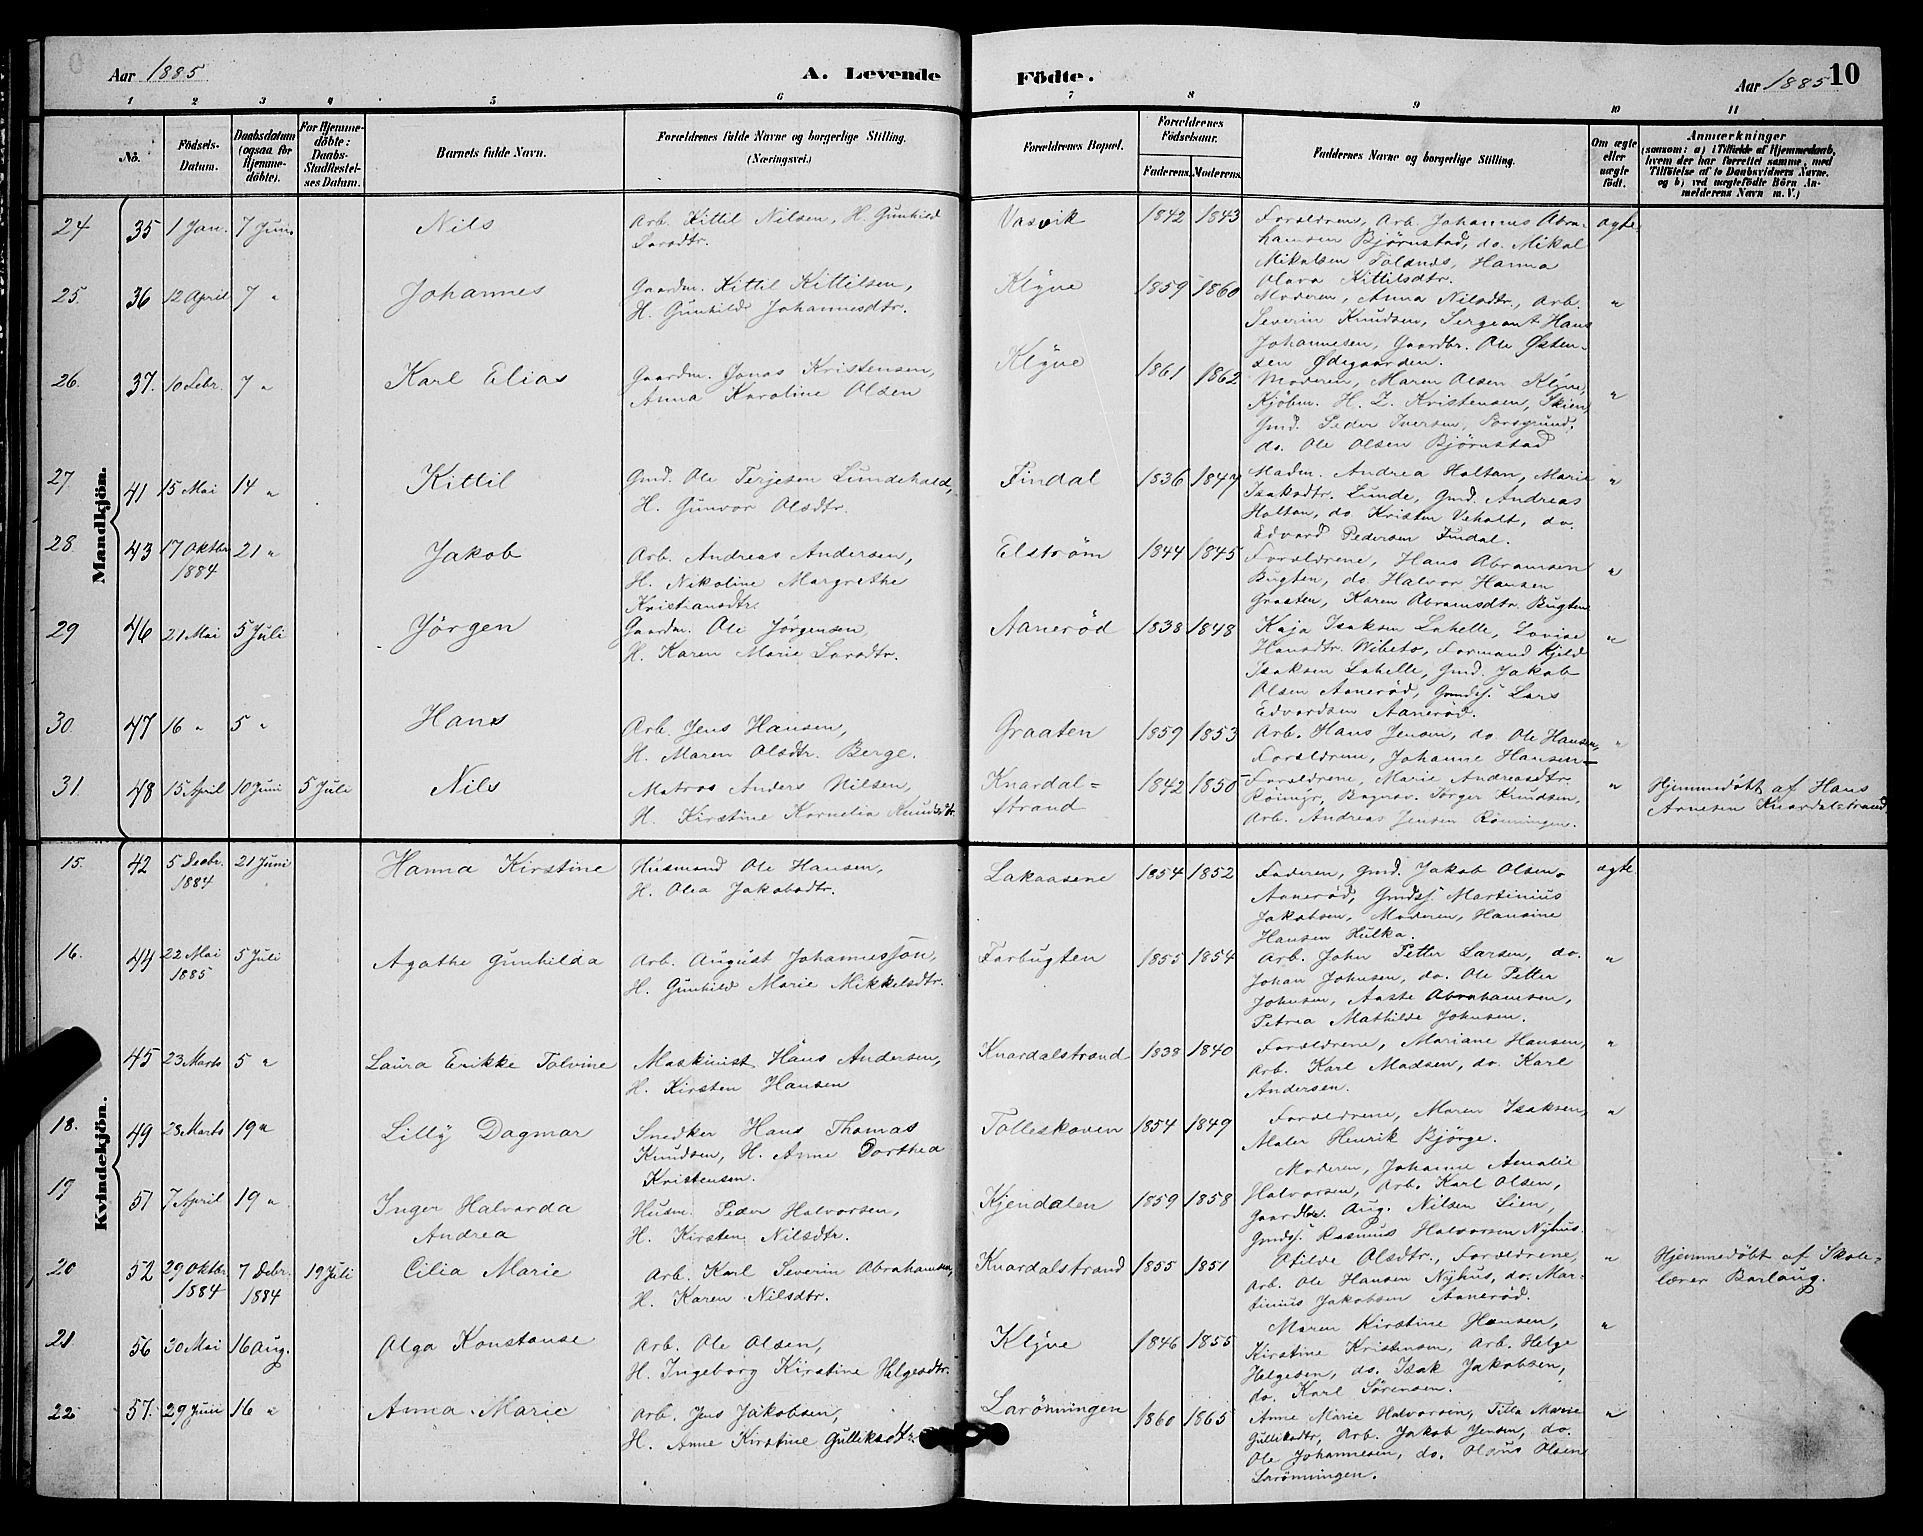 Aar 1885
A. Levende
Födte.
Aar 1885
10
1 2 3 4 5 6 7 8 9 10 11
No.
Födsels-
Datum.
Daabsdatum
(ogsaa for
Hjemme-
döbte).
For Hjemme-
döbte:
Daabs-
Stadfestel-
ses Datum.
Barnets fulde Navn.
Forældrenes fulde Navne og borgerlige Stilling.
(Næringsvei.)
Forældrenes Bopæl.
Forældrenes
Födselsaar.
Faderens. Moderens.
Faddernes Navne og borgerlige Stilling.
Om ægte
eller
uægte
födt.
Anmærkninger
(saasom: a) i Tilfælde af Hjemmedaab,
hvem der har forrettet samme, med
Tilföielse af to Daabsvidners Navne,
og b) ved uægtefödte Börn An-
melderens Navn m. V.)
Mandkjön.
24 35 1 Jan. 7 Juni Nils
Arb. Kittil Nilsen, H. Gunhild
Larsdtr.
Vasvik 1842 1843
Forældrene, Arb. Johannes Abra-
hamsen Bjørnstad, do. Mikal
Mikalsen Foldnes, Hanna
Olava Kittilsdtr.
ægte
25. 36 12 April 7 " Johannes
Gaardm. Kittil Kittilsen,
H. Gunhild Johannesdtr.
Klyve 1859 1860
Moderen, Anna Nilsdtr., Arb.
Severin Knudsen, Sergeant Hans
Johannesen, Gaardbr. Ole Østen-
sen Ødegaarden.
"
26. 37. 10 Febr. 7 " Karl Elias
Gaardm. Jonas Kristensen,
Anna Karoline Olsen
Klyve 1861 1862
Moderen, Maren Olsen Klyve,
Kjøbm. H. Z. Kristensen, Skien,
Gmd. Peder Iversen, Porsgrund,
do. Ole Olsen Bjørnstad
"
27 41 15 Mai 14 " Kittil
Gmd. Ole Terjesen Lundehald,
H. Gunvor Olsdtr.
Findal 1836 1847
Madm. Andrea Holtan, Marie
Isaksdtr. Lunde, Gmd. Andreas
Holtan, do. Kristen Veholt, do.
Edvard Pedersen Findal.
"
28 43 17 Oktbr. 1884 21 " Jakob
Arb. Andreas Andersen,
H. Nikoline Margrethe
Kristiansdtr.
Elstrøm 1844 1845
Forældrene, Hans Abramsen
Bugten, do. Halvor Hansen
Graaten, Karen Abramsdtr. Bugten
"
29 46 21 Mai 5 Juli Jörgen
Gaardm. Ole Jörgensen,
H. Karen Marie Larsdtr.
Aanerød 1838 1848
Kaja Isaksen Lahelle, Lovise
Hansdtr. Wibeto, Formand Kjeld
Isaksen Lahelle, Gmd. Jakob
Olsen Aanerød, Gmdsj. Lars
Edvardsen Aanerød.
"
30 47 16 " 5 " Hans
Arb. Jens Hansen,
H. Maren Olsdtr. Berge.
Graaten 1859 1853
Arb. Hans Jensen, do. Ole Hansen,
Forældrene, Johanne Hansen
"
31. 48 15 April 10 Juni 5 Juli Nils
Matros Anders Nilsen,
H. Kirstine Kornelia Knudsdtr.
Knardal-
strand 1842 1850
Forældrene, Marie Andreasdtr
Röimyr, Knudsen,
Arb. Andreas Jensen Rønningen.
"
Hjemmedöbt af Hans
Arnesen Knardalstrand
Kvindekjön.
15. 42 5 Decbr. 1884 21 Juni Hanna Kirstine
Husmand Ole Hansen,
H. Olea Jakobsdtr.
Lakaasene 1854 1852
Faderen, Gmd. Jakob Olsen
Aanerød, Gmdsj. Martinius
Jakobsen, Moderen, Hansine
Hansen Hulka.
ægte
16. 44 22 Mai 1885 5 Juli Agathe Gunhilda
Arb. August Johannesson,
H. Gunhild Marie Mikkelsdtr.
Farbugten 1855 1854
Arb. John Petter Larsen, do.
Johan Johnsen, do. Ole Petter
Johnsen, Aaste Abrahamsen,
Petrea Mathilde Johnsen.
"
45 23 Marts 5 " Laura Erikke Tolvine
Maskinist Hans Andersen,
H. Kirsten Hansen
Knardalstrand 1838 1840
Forældrene, Mariane Hansen,
Arb. Karl Madsen, do. Karl
Andersen.
"
18. 49 28 Marts 19 " Lilly Dagmar
Snedker Hans Thomas
Knudsen, H. Anne Dorthea
Kristensen.
Tolleskoven 1854 1849
Forældrene, Maren Isaksen,
Maler Henrik Bjørge.
"
19 51 7 April 19 " Inger Halvarda
Andrea
Husm. Peder Halvorsen,
H. Kirsten Nilsdtr.
Kjendalen 1859 1858
Moderen, Johanne Amalie
Halvorsen, Arb. Karl Olsen,
Gaardbr. Aug. Nilsen Lien,
Gmdsj. Rasmus Halvorsen Nyhus.
20 52 29 Oktbr. 1884 7 Debr. 1884 19 Juli Cilia Marie
Arb. Karl Severin Abrahamsen,
H. Karen Nilsdtr.
Knardalstrand 1855 1851
Ofilde Olsdtr., Forældrene,
Arb. Ole Hansen Nyhus, do. Mar-
tinius Jakobsen Aanerød.
"
Hjemmedöbt af Skole-
lærer Barlaug.
21 56 30 Mai 16 Aug. Olga Konstanse
Arb. Ole Olsen,
H. Ingeborg Kirstine Helgesdtr.
Klyve 1846 1855
Maren Kirstine Hansen,
Kirstine Kristensen, Arb. Helge
Helgesen, do. Isak Jakobsen,
do. Karl Sörensen.
"
22 57. 29 Juni 16 " Anna Marie
Arb. Jens Jakobsen,
H. Anne Kirstine Gulliksdtr.
Larönningen 1860 1865
Anne Marie Halvorsen, Tilla Marie
Gulliksdtr, Arb. Jakob Jensen, do.
Ole Johannesen, do. Olaus Olsen
Larönningen.
"